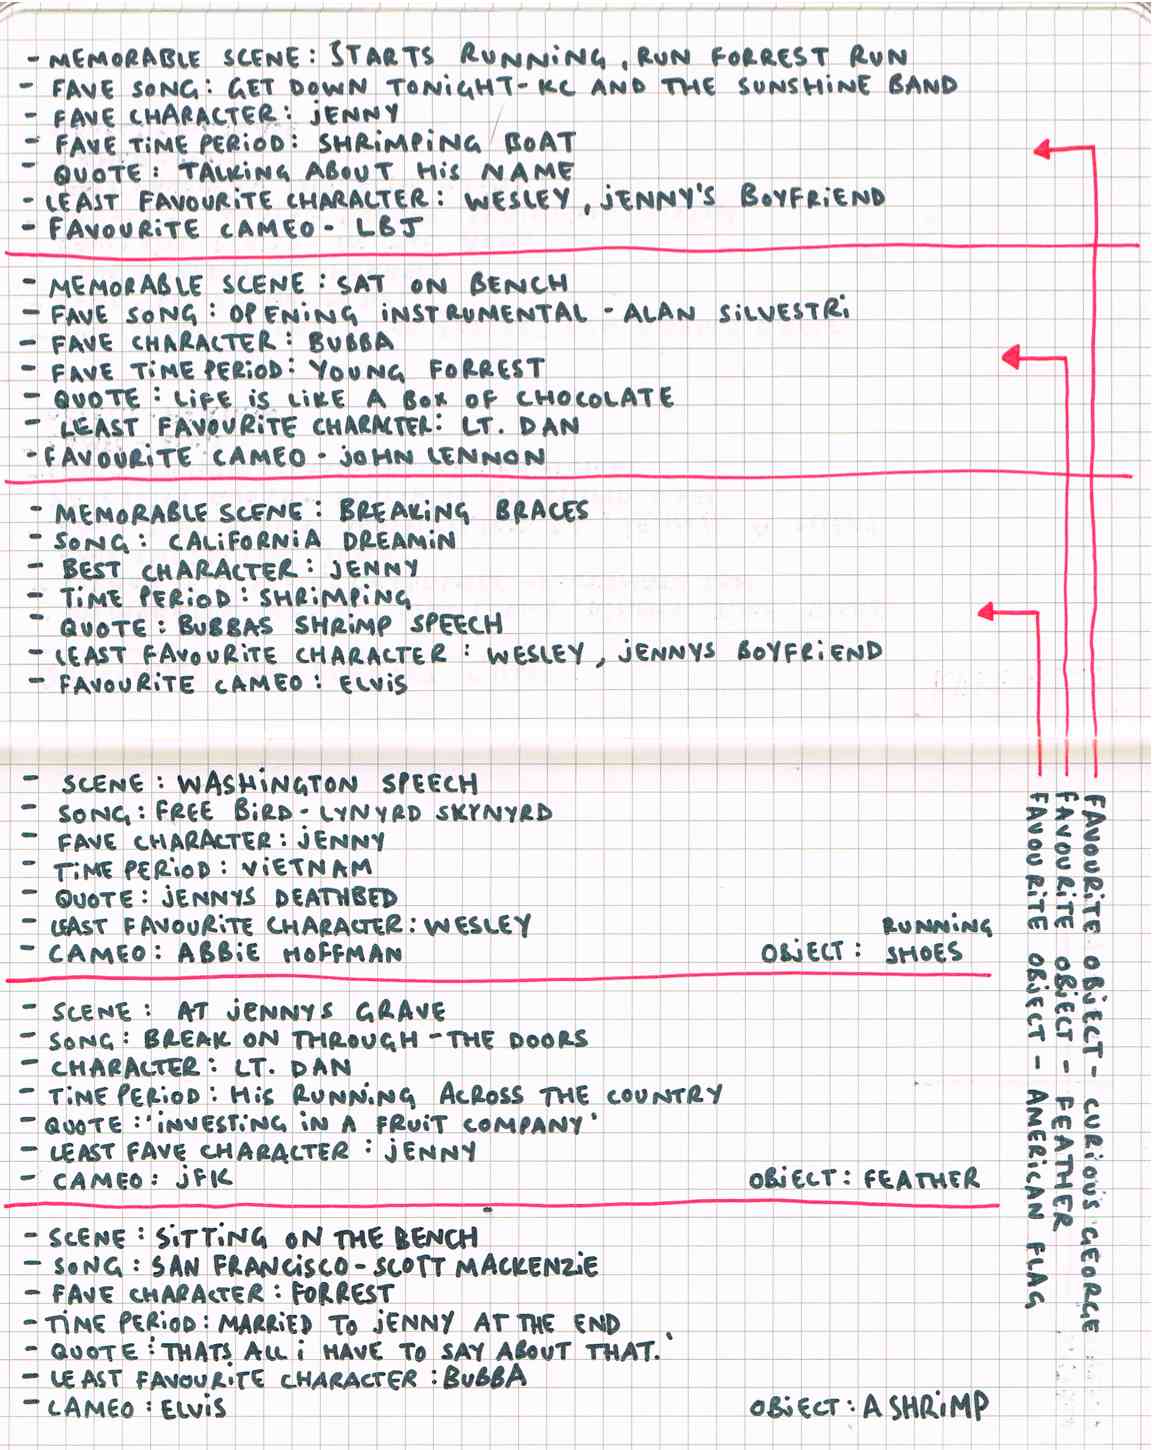 - MEMORABLE SCENE : STARTS RUNNING, RUN FORREST RUN
- FAVE SONG : GET DOWN TONIGHT - KC AND THE SUNSHINE BAND
- FAVE CHARACTER : JENNY
- FAVE TIME PERIOD : SHRIMPING BOAT
- QUOTE : TALKING ABOUT HIS NAME
- LEAST FAVOURITE CHARACTER : WESLEY, JENNY'S BOYFRIEND
- FAVOURITE CAMEO - LBJ
- MEMORABLE SCENE : SAT ON BENCH
- FAVE SONG : OPENING INSTRUMENTAL - ALAN SILVESTRI
- FAVE CHARACTER : BUBBA
- FAVE TIME PERIOD : YOUNG FORREST
- QUOTE : LIFE IS LIKE A BOX OF CHOCOLATE
- LEAST FAVOURITE CHARACTER : LT. DAN
- FAVOURITE CAMEO - JOHN LENNON
- MEMORABLE SCENE : BREAKING BRACES
- SONG : CALIFORNIA DREAMIN
- BEST CHARACTER : JENNY
- TIME PERIOD : SHRIMPING
- QUOTE : BUBBAS SHRIMP SPEECH
- LEAST FAVOURITE CHARACTER : WESLEY, JENNYS BOYFRIEND
- FAVOURITE CAMEO : ELVIS
- SCENE : WASHINGTON SPEECH
- SONG : FREE BIRD - LYNYRD SKYNYRD
- FAVE CHARACTER : JENNY
- TIME PERIOD : VIETNAM
- QUOTE : JENNYS DEATHBED
- LEAST FAVOURITE CHARACTER : WESLEY
- CAMEO : ABBIE HOFFMAN
OBJECT : RUNNING
SHOES
- SCENE : AT JENNYS GRAVE
- SONG : BREAK ON THROUGH - THE DOORS
- CHARACTER : LT. DAN
- TIME PERIOD : HIS RUNNING ACROSS THE COUNTRY
- QUOTE : 'INVESTING IN A FRUIT COMPANY'
- LEAST FAVE CHARACTER : JENNY
- CAMEO : JFK
OBJECT : FEATHER
- SCENE : SITTING ON THE BENCH
- SONG : SAN FRANCISCO - SCOTT MACKENZIE
- FAVE CHARACTER : FORREST
- TIME PERIOD : MARRIED TO JENNY AT THE END
- QUOTE : 'THATS ALL I HAVE TO SAY ABOUT THAT.'
- LEAST FAVOURITE CHARACTER : BUBBA
- CAMEO : ELVIS
OBJECT : A SHRIMP
FAVOURITE OBJECT - CURIOUS GEORGE
FAVOURITE OBJECT - FEATHER
FAVOURITE OBJECT - AMERICAN FLAG